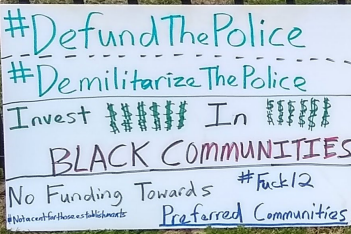 #DefundThePolice
#DemilitarizeThePolice
Invest $$$$$$ In $$$$$$
BLACK COMMUNITIES
No Funding Towards #Fuck12
#Notacentforthoseestablishments Preferred Communities